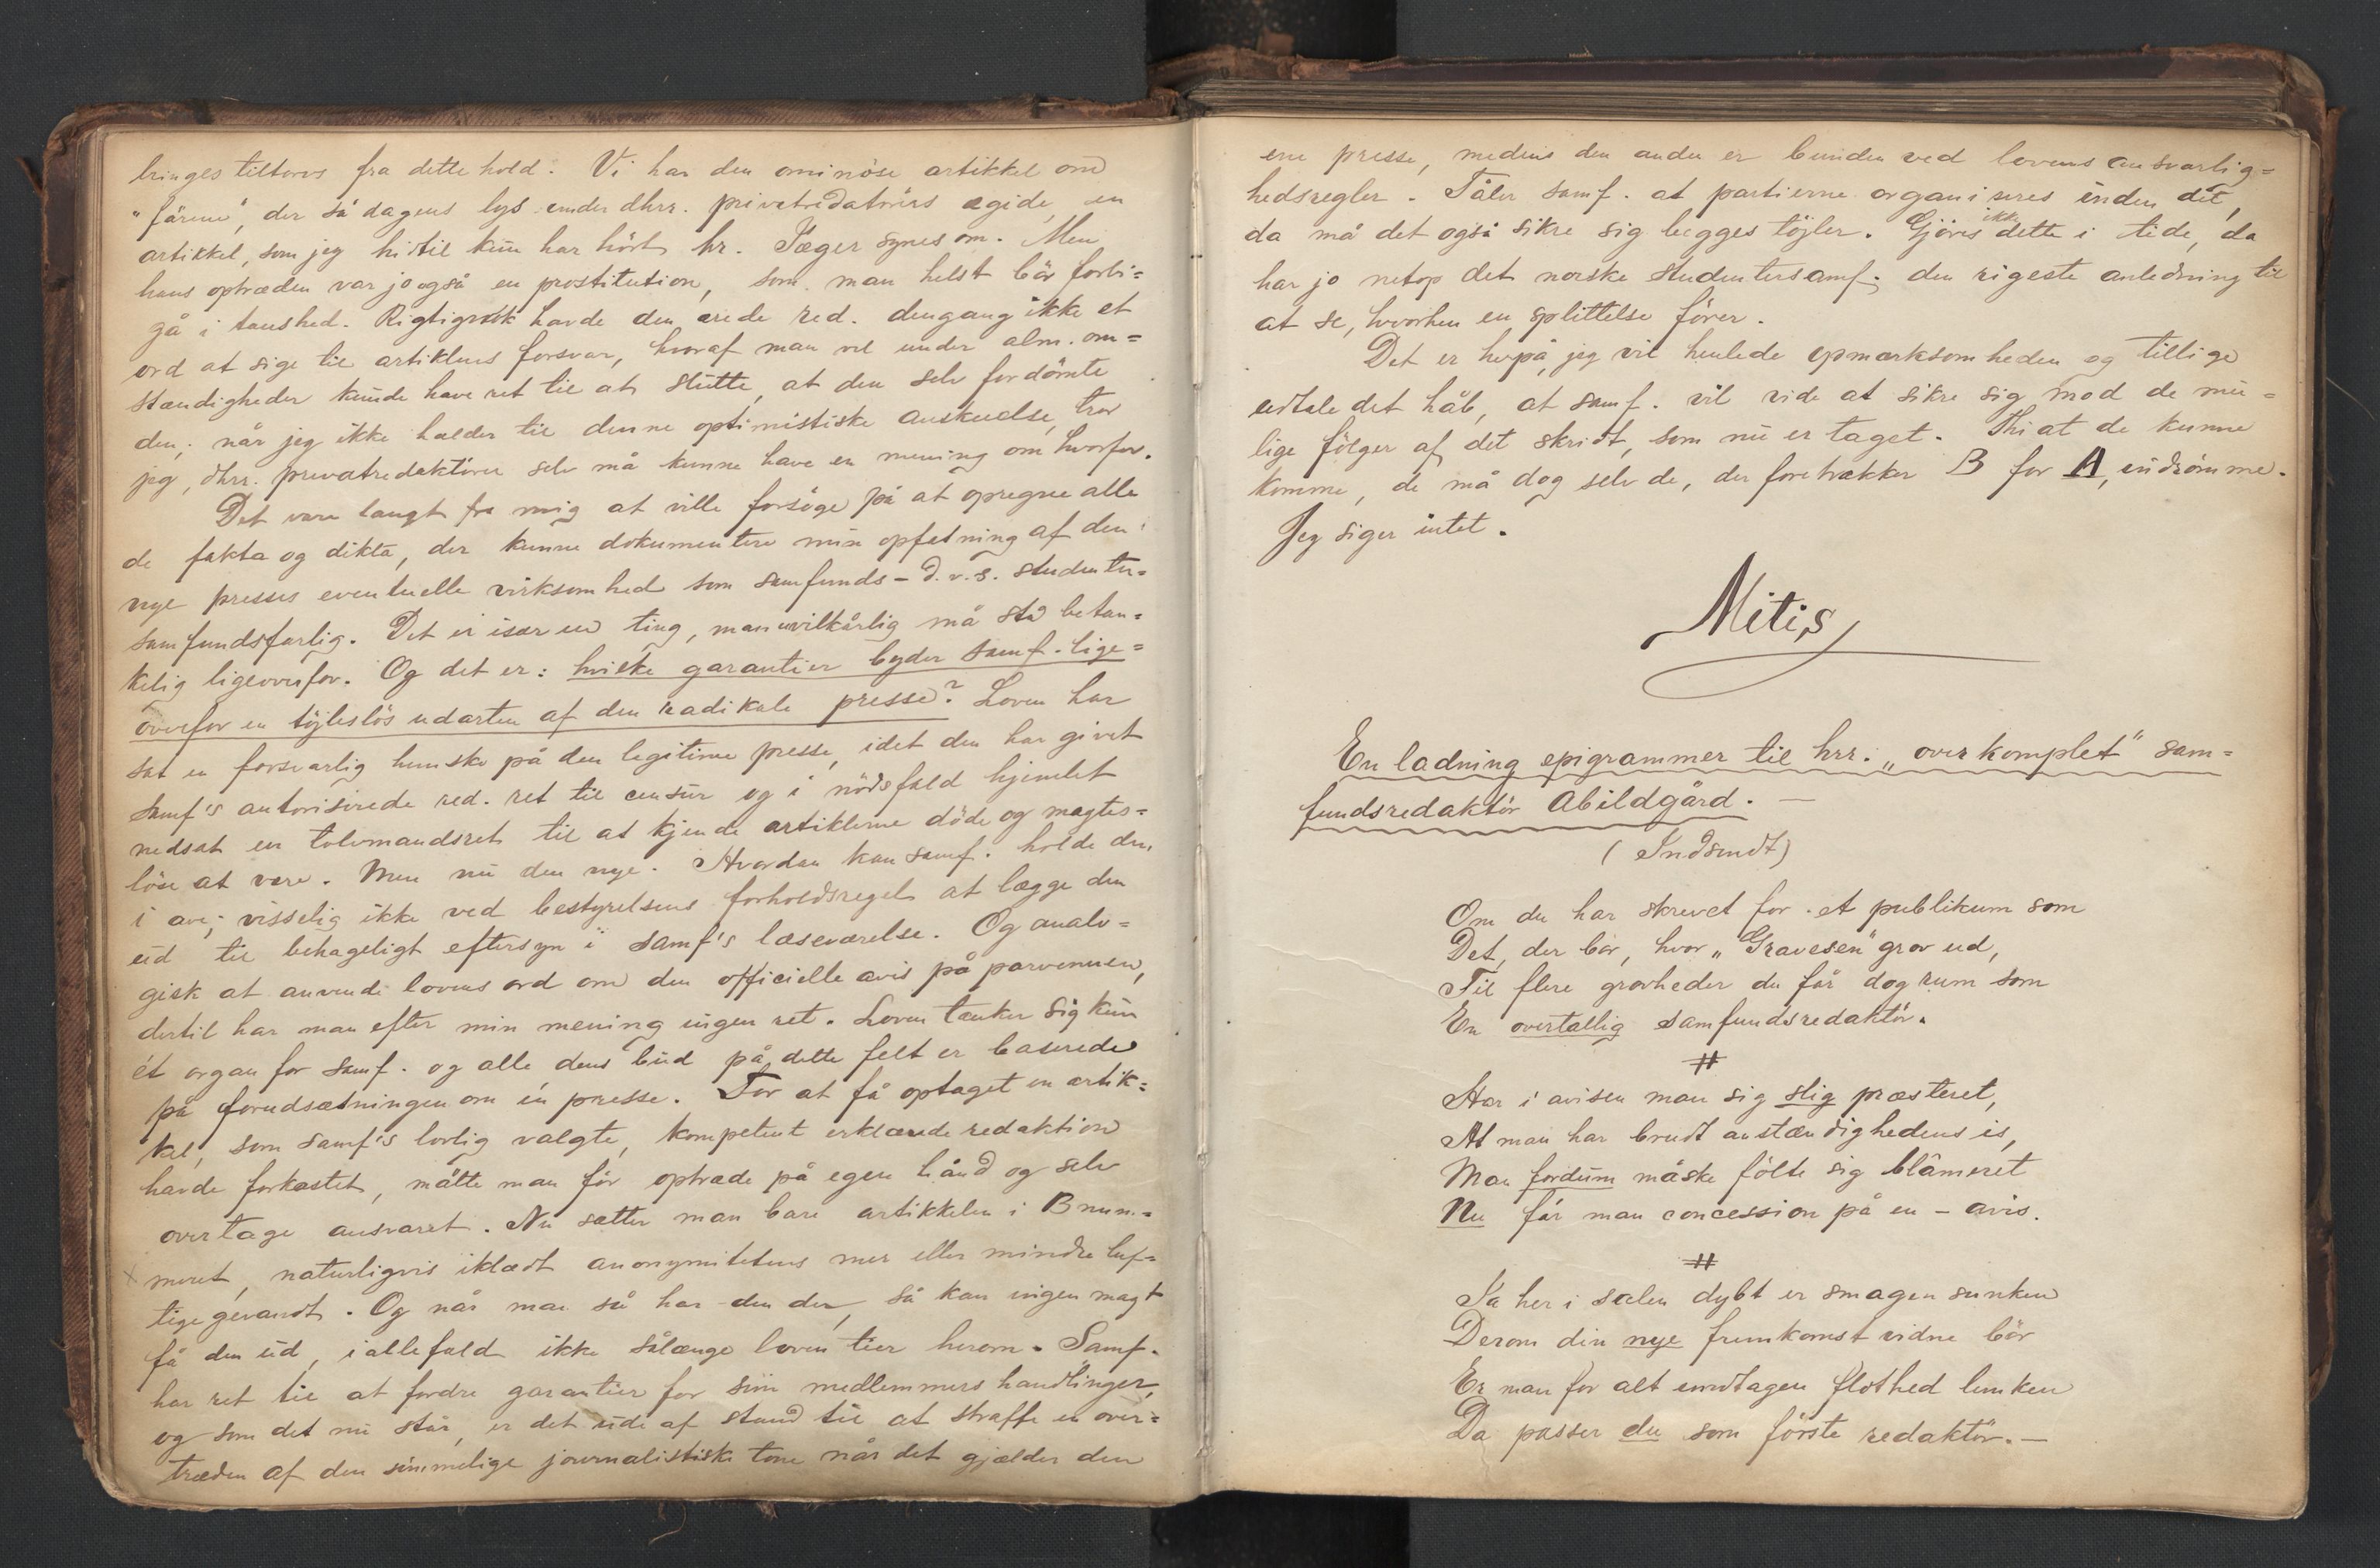 bringes tiltorvs fra dette hold. Vi har den ominöse artikkel om
"fårene", der så dagens lys under dhrr. privatredaktörs ægide, en
artikkel, som jeg hidtil kun har hört hr. Jæger synes om. Men
hans optræden var jo også en prostitution, som man helst bör forbi=
gå i taushed. Rigtignok havde den ærede red. dengang ikke et
ord at sige til artiklens forsvar, hvoraf man vel under alm. om=
stændigheder kunde have ret til at slutte, at den selv fordömte
den; når jeg ikke hælder til denne optimistiske anskuelse, tror
jeg, dhrr. privatredaktörer selv må kunne have en mening om hvorfor.
Det være langt fra mig at ville forsöge på at opregne alle
de fakta og dikta, der kunne dokumentere min opfatning af den
nye presses eventuelle virksomhed som samfunds- d.v.s. studenter=
samfundsfarlig. Det er især en ting, man uvilkårlig må stå betæn=
kelig ligeoverfor. Og det er: hvilke garantier byder samf. lige=
overfor en töjleslös udarten af den radikale presse? Loven har
sat en forsvarlig hemsko på den legitime presse, idet den har givet
samf's autoriserede red. ret til censur og i nödsfald hjemlet
nedsat en tolvmandsret til at kjende artiklerne döde og magtes=
löse at være. Men nu den nye. Hvordan kan samf. holde den
i ave; visselig ikke ved bestyrelsens forholdsregel at lægge den
ud til behageligt eftersyn i samf's læseværelse. Og analo=
gisk at anvende lovens ord om den officielle avis på parvenuen,
dertil har man efter min mening ingen ret. Loven tænker sig kun
ét organ for samf. og alle dens bud på dette felt er baserede
på forudsætningen om én presse. For at få optaget en artik=
kel, som samf's lovlig valgte, kompetent erklærede redaktion
havde forkastet, måtte man för optræde på egen hånd og selv
overtage ansvaret. Nu sætter man bare artikkelen i B num=
meret, naturligvis iklædt anonymitetens mer eller mindre luf=
tige gevandt. Og når man så har den der, så kan ingen magt
få den ud, iallefald ikke sålænge loven tier herom. Samf.
har ret til at fordre garantier for sine medlemmers handlinger,
og som det nu står, er det ude af stand til at straffe en over=
træden af den sömmelige journalistiske tone når det gjælder den
ene presse, medens den anden er bunden ved lovens ansvarlig=
hedsregler. Tåler samf. at partierne organiseres inden det,
da må det også sikre sig begges töjler. Gjöres ikke dette i tide, da
har jo netop det norske studentersamf. den rigeste anledning til
at se, hvorhen en splittelse förer.
Det er herpå, jeg vil henlede opmærksomheden og tillige
udtale det håb, at samf. vil vide at sikre sig mod de mu=
lige fölger af det skridt, som nu er taget. Thi at de kunne
komme, de må dog selv de, der foretrækker B for A, indrömme.
Jeg siger intet.
Mitis
En ladning epigrammer til hrr. „overkomplet" sam=
fundsredaktör Abildgård. —
(Indsendt)
Om du har skrevet for et publikum som
Det, der bör, hvor „Gravesen" grov ud,
Til flere grovheder du får dog rum som
En overtallig samfundsredaktör.
#
Har i avisen man sig slig præsteret,
At man har brudt anstændighedens is,
Man fordum måske fölte sig blâmeret
Nu får man concession på en – avis.
#
Ja her i salen dybt er smagen sunken
Derom din nye fremkomst vidne bör
Er man for alt undtagen flothed lunken
Da passer du som förste redaktör. —